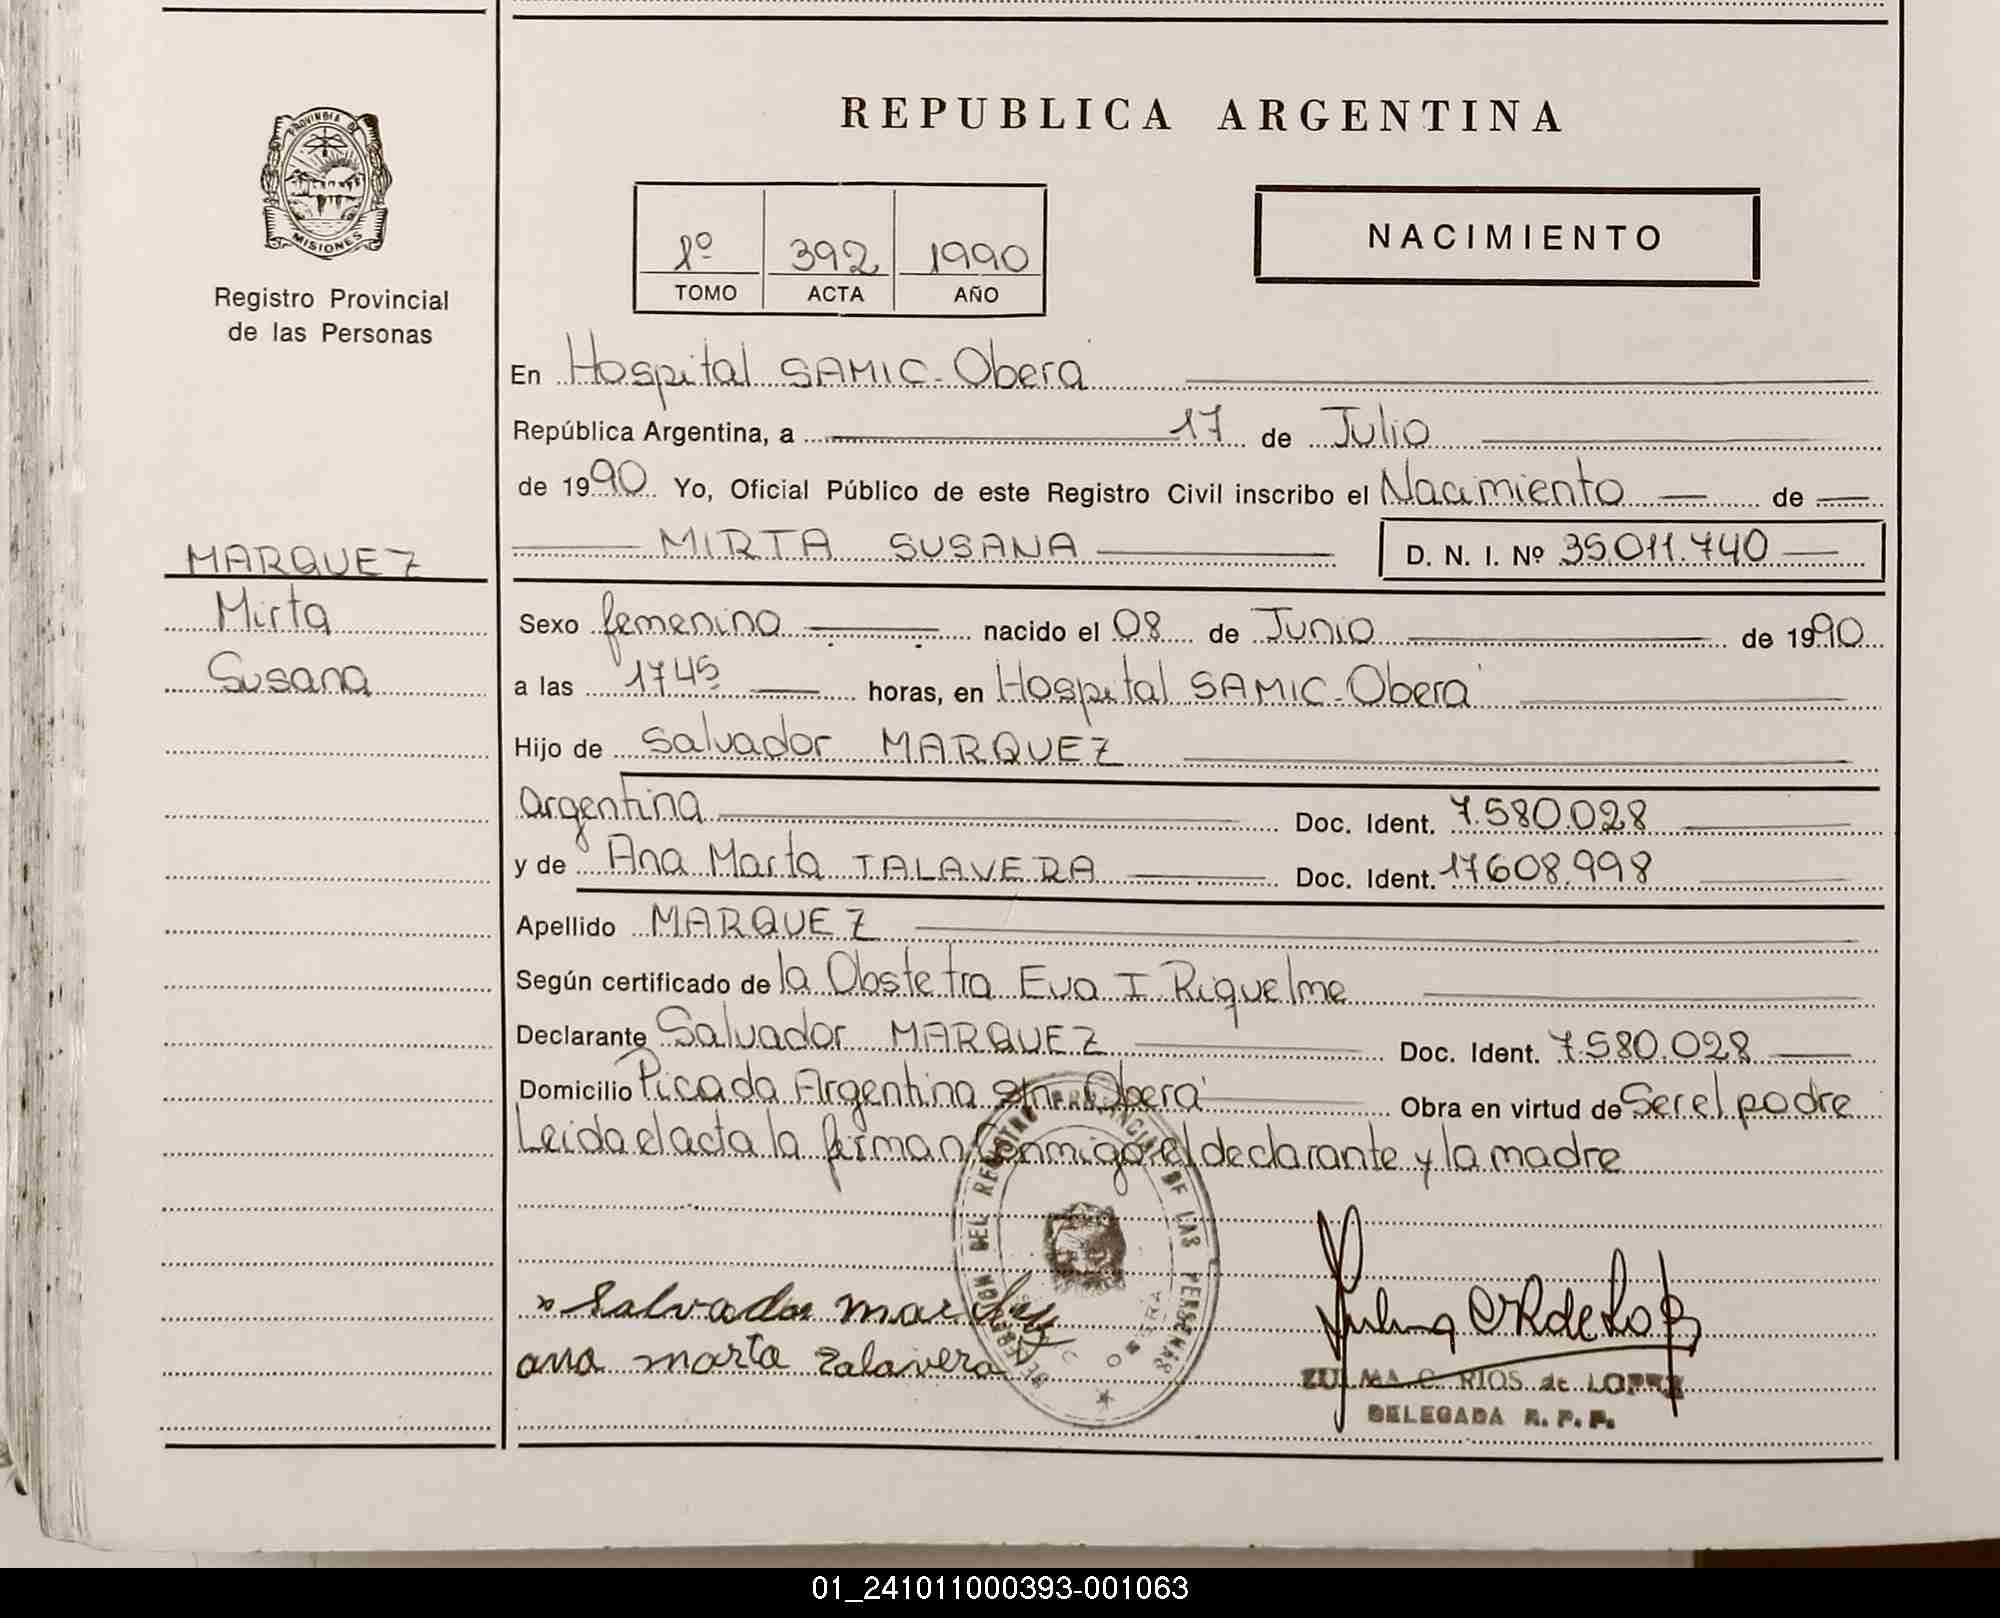 REPUBLICA ARGENTINA
PROVINCIA DE
MISIONES
Registro Provincial
de las Personas
1º 392 1990
TOMO ACTA AÑO
NACIMIENTO
En Hospital SAMIC - Oberá
República Argentina, a 17 de Julio
de 1990 Yo, Oficial Público de este Registro Civil inscribo el Nacimiento de
MIRTA SUSANA D. N. I. Nº 35.011.740
MARQUEZ
Mirta
Susana
Sexo femenino nacido el 08 de Junio de 1990
a las 1745 horas, en Hospital SAMIC - Oberá
Hijo de Salvador MARQUEZ
argentina Doc. Ident. 7.580.028
y de Ana Marta TALAVERA Doc. Ident. 17608.998
Apellido MARQUEZ
Según certificado de la Obstetra Eva I Riquelme
Declarante Salvador MARQUEZ Doc. Ident. 7.580.028
Domicilio Picada Argentina s/n Oberá Obra en virtud de Ser el padre
Leida el acta la firman Conmigo el declarante y la madre
DEL REGISTRO PROVINCIAL DE LAS PERSONAS
OBERA
Salvador marquez
ana marta talavera
ZULMA C. RIOS de LOPEZ
DELEGADA R. P. P.
01_241011000393-001063